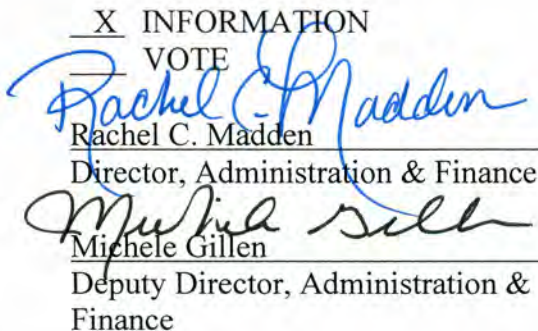 X INFORMATION
VOTE
Rachel C. Madden
Rachel C. Madden
Director, Administration & Finance
Michele Gillen
Michele Gillen
Deputy Director, Administration &
Finance